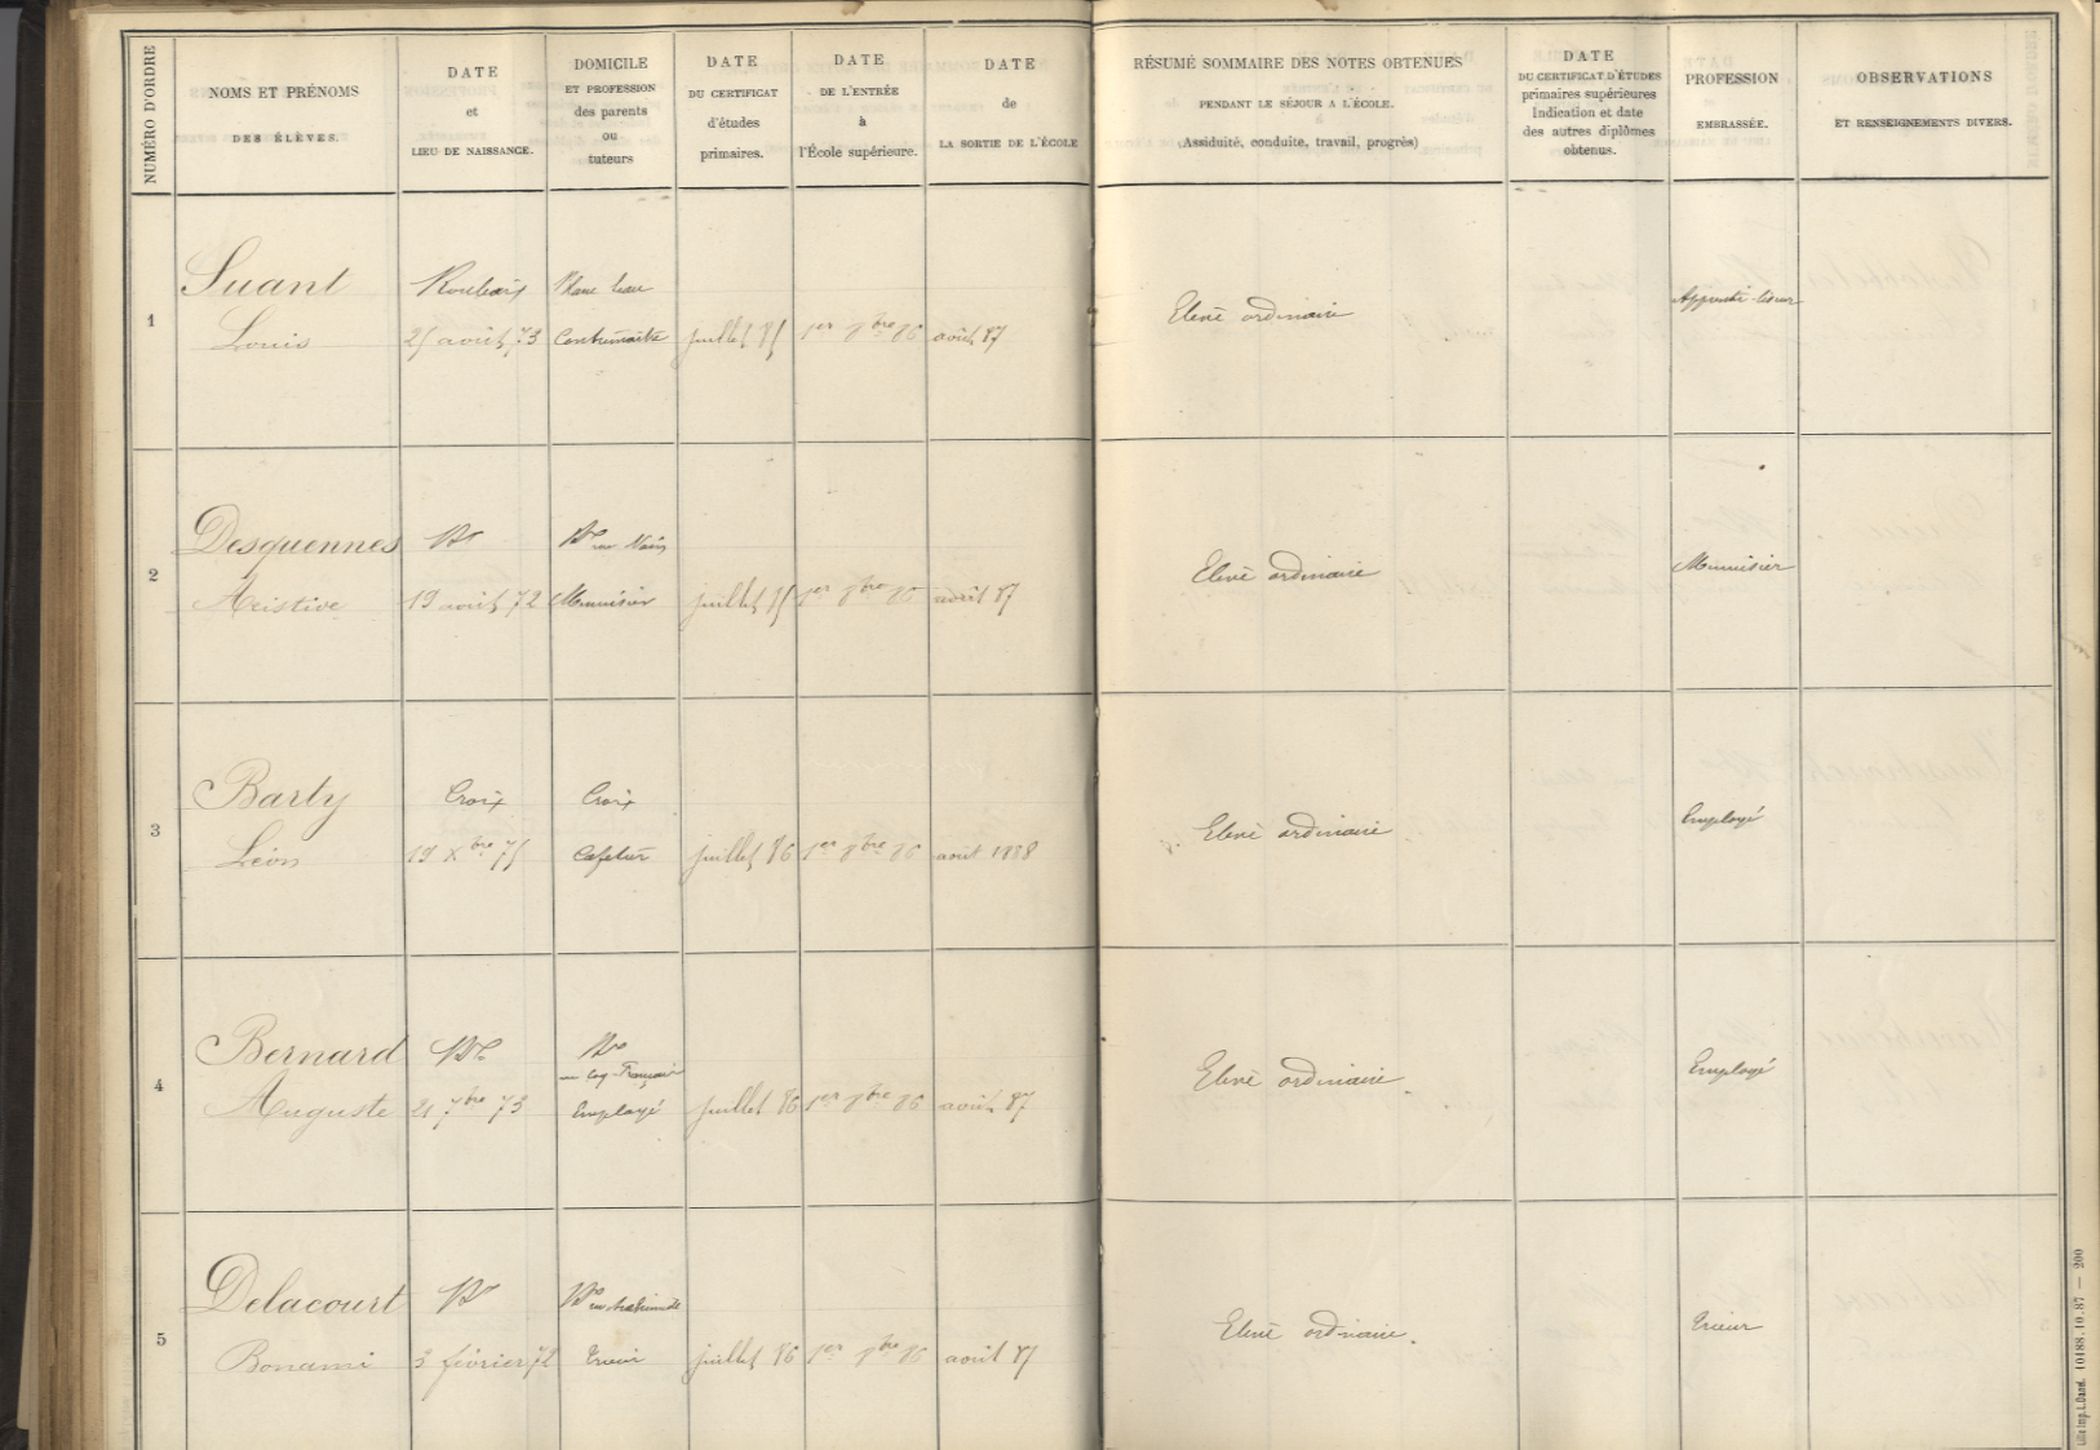 NUMÉRO D'ORDRE
NOMS ET PRÉNOMS
DES ÉLÈVES.
DATE
et
LIEU DE NAISSANCE.
DOMICILE
ET PROFESSION
des parents
ou
tuteurs
DATE
DU CERTIFICAT
d'études
primaires.
DATE
DE L'ENTRÉE
à
l'École supérieure.
DATE
de
LA SORTIE DE L'ÉCOLE
RÉSUMÉ SOMMAIRE DES NOTES OBTENUES
PENDANT LE SÉJOUR A L'ÉCOLE.
(Assiduité, conduite, travail, progrès)
DATE
DU CERTIFICAT D'ÉTUDES
primaires supérieures
Indication et date
des autres diplômes
obtenus.
PROFESSION
EMBRASSÉE.
OBSERVATIONS
ET RENSEIGNEMENTS DIVERS.
1
Suant
Louis
Roubaix
25 août 73
Contremaître
juillet 85
1er 8bre 86
août 87
Elève ordinaire
Apprenti-liseur
2
Desquennes
Aristive
19 août 72
rue
Menuisier
juillet 85
1er 8bre 86
août 87
Elève ordinaire
Menuisier
3
Barty
Léon
Croix
19 Xbre 75
Croix
Cafetier
juillet 86
1er 8bre 86
août 1888
Elève ordinaire
Employé
4
Bernard
Auguste
21 7bre 73
Coq-Français
Employé
juillet 86
1er 8bre 86
août 87
Elève ordinaire.
Employé
5
Delacourt
Bonami
3 février 72
rue
Trieur
juillet 86
1er 8bre 86
août 87
Elève ordinaire.
Trieur
Lille Imp. L. Danel. 10188.10.87 — 200